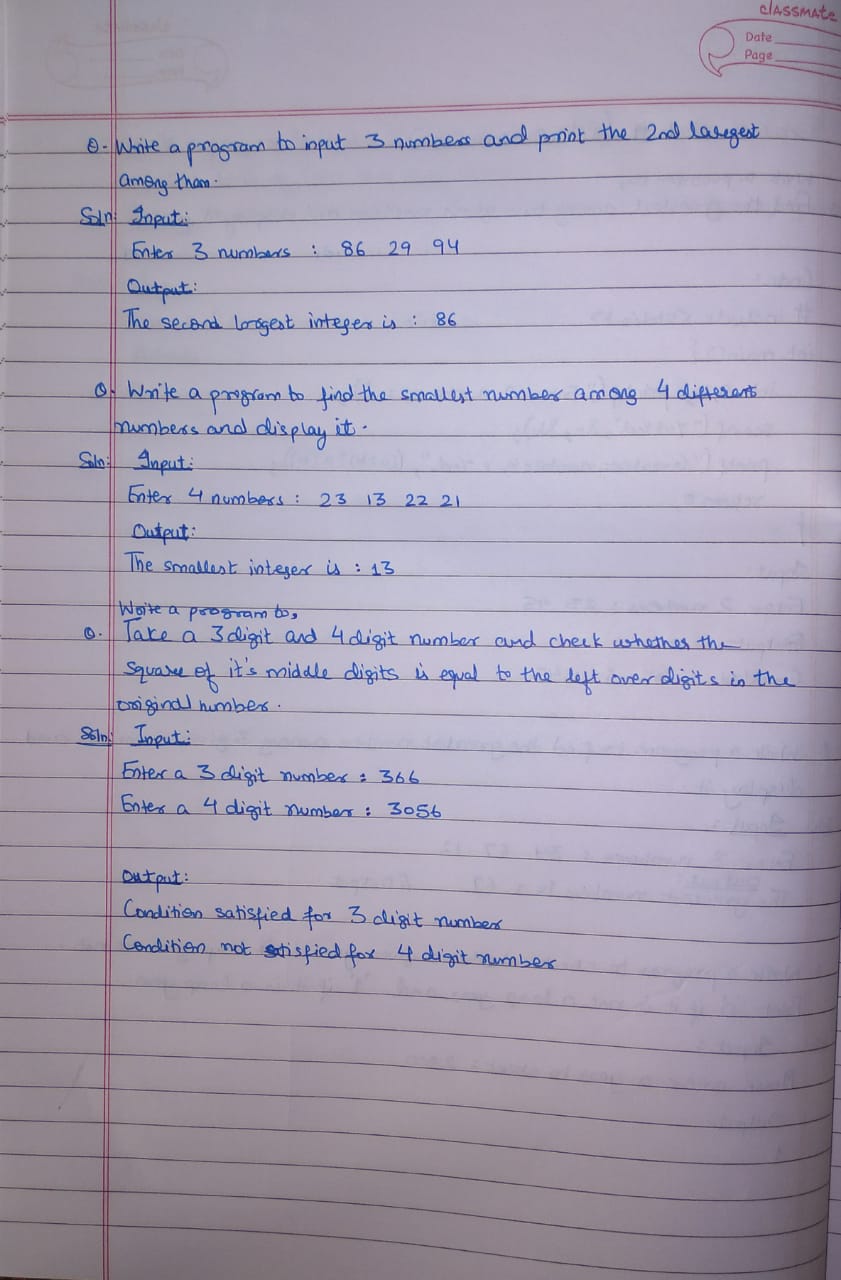 classmate
Date
Page
Q. Write a program to input 3 numbers and print the 2nd largest
among tham.
Soln: Input:
Enter 3 numbers : 86 29 94
Output:
The second largest integer is : 86
Q. Write a program to find the smallest number among 4 different
numbers and display it.
Soln: Input:
Enter 4 numbers : 23 13 22 21
Output:
The smallest integer is : 13
Write a program to,
Q. Take a 3 digit and 4 digit number and check whether the
square of it's middle digits is equal to the left over digits in the
original number.
Soln: Input:
Enter a 3 digit number : 366
Enter a 4 digit number : 3056
Output:
Condition satisfied for 3 digit number
Condition not satisfied for 4 digit number